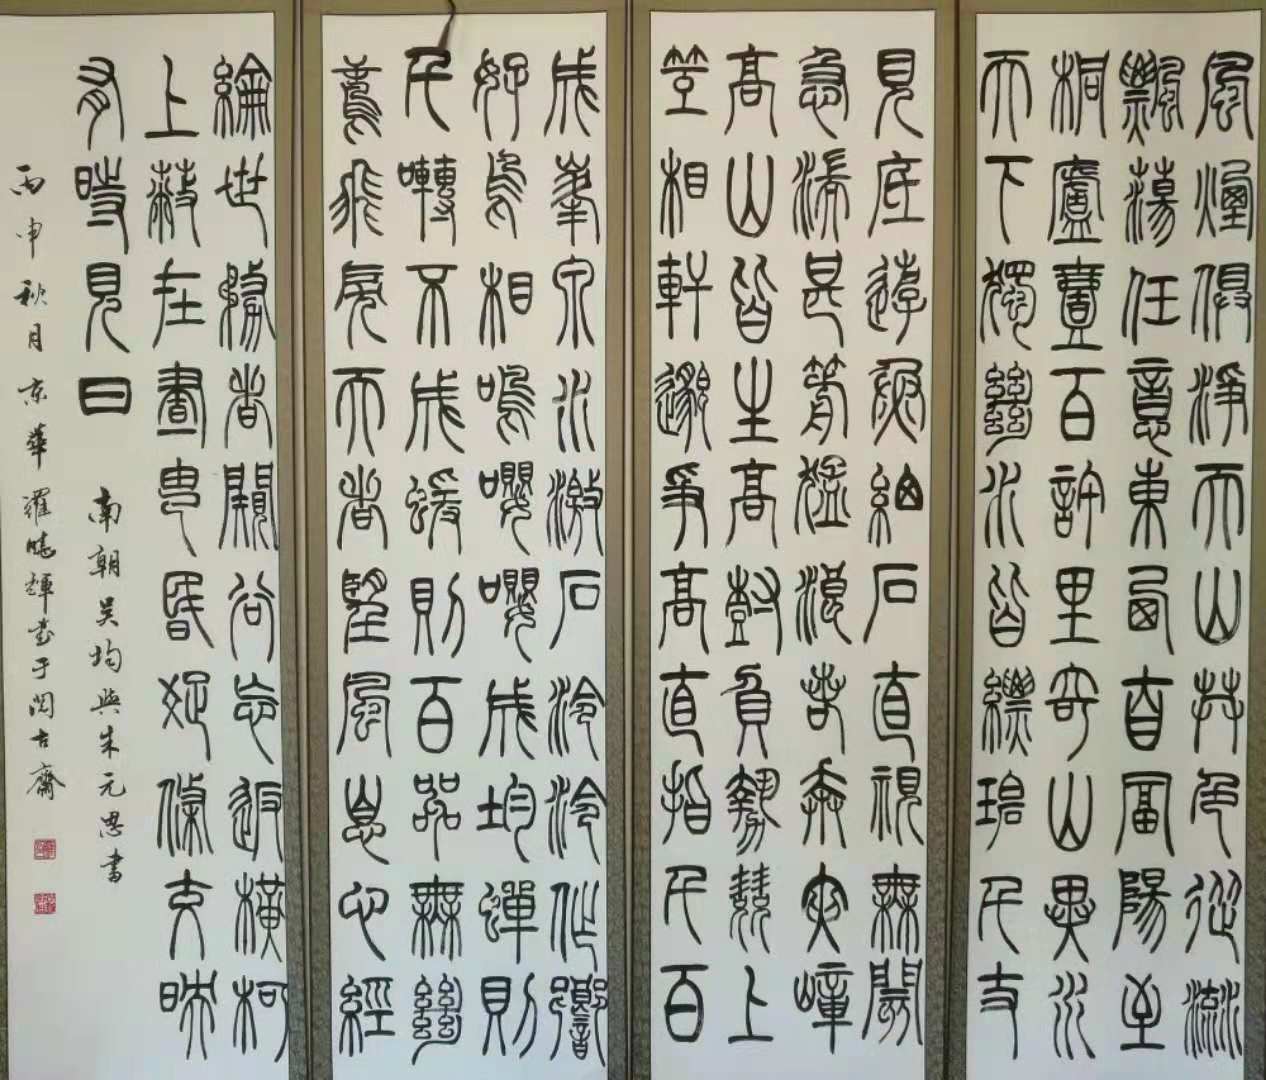 風煙俱淨天山共色從流
飄蕩任意東西自富陽至
桐廬壹百許里奇山異水
天下獨絕水皆縹碧千丈
見底游魚細石直視無閡
急湍甚箭猛浪若奔夾嶂
高山皆生高樹負勢競上
互相軒邈爭高直指千百
成峯泉水激石泠泠作響
好鳥相鳴嚶嚶成均蟬則
千囀不成蝯則百叫無絕
鳶飛戾天者望風息心經
綸世務者闚谷忘返橫柯
上蔽在晝猶昏疏條交映
有時見日
南朝吳均與朱元思書
丙申秋月京華羅曉輝書于閱古齋